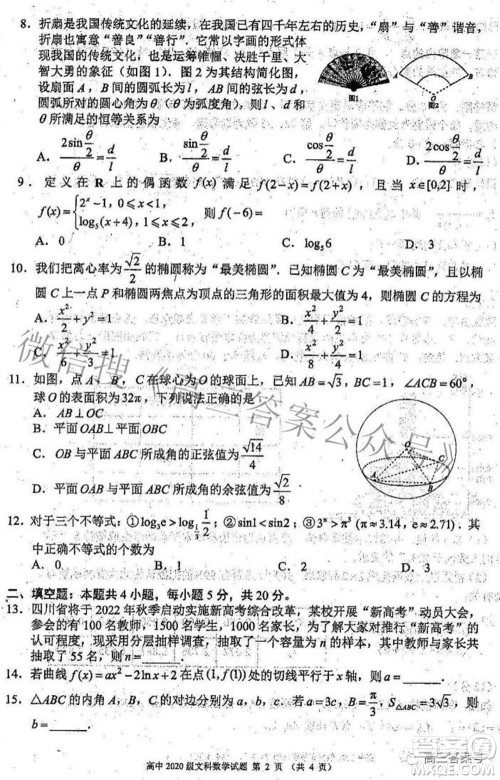 8. 折扇是我国传统文化的延续,在我国已有四千年左右的历史,“扇”与“善”谐音,
折扇也寓意“善良”“善行”.它常以字画的形式体
现我国的传统文化,也是运筹帷幄、决胜千里、大
智大勇的象征(如图1).图2为其结构简化图,
设扇面A,B间的圆弧长为l,AB间的弦长为d,
圆弧所对的圆心角为θ(θ为弧度角),则l、d和
θ所满足的恒等关系为
图1 图2
A. 2sin(θ/2)/θ = d/l B. sin(θ/2)/θ = d/l C. cos(θ/2)/θ = d/l D. 2cos(θ/2)/θ = d/l
9. 定义在R上的偶函数f(x)满足f(2-x)=f(2+x),且当x∈[0,2]时,
f(x)={2ˣ-1, 0≤x<1, log₅(x+4), 1≤x≤2, 则f(-6)=
A. 0 B. 1 C. log₅6 D. 3
10. 我们把离心率为√2/2的椭圆称为“最美椭圆”.已知椭圆C为“最美椭圆”,且以椭
圆C上一点P和椭圆两焦点为顶点的三角形的面积最大值为4,则椭圆C的方程为
A. x²/2+y²=1 B. x²/4+y²/2=1
C. x²/6+y²/3=1 D. x²/8+y²/4=1
11. 如图,点A,B,C在球心为O的球面上,已知AB=√3,BC=1,∠ACB=60°,
球O的表面积为32π,下列说法正确的是
A. AB⊥OC
B. 平面OAB⊥平面OBC
C. 平面OBC与平面ABC所成角的正弦值为√14/4
D. 平面OAB与平面ABC所成角的余弦值为√2/8
O
C
A
B
12. 对于三个不等式:①log₃e>log₁/₃(1/2);②sin1<sin2;③3^π>π³(π≈3.14,e≈2.71).其
中正确不等式的个数为
A. 0 B. 1 C. 2 D. 3
二、填空题:本题共4小题,每小题5分,共20分.
13. 四川省将于2022年秋季启动实施新高考综合改革,某校开展“新高考”动员大会,
参会的有100名教师,1500名学生,1000名家长,为了解大家对推行“新高考”的
认可程度,现采用分层抽样调查,抽取了一个容量为n的样本,其中教师与家长共
抽取了55名,则n=______.
14. 若曲线f(x)=ax²-2lnx+2在点(1,f(1))处的切线平行于x轴,则a=______.
15. △ABC的内角A,B,C的对边分别为a,b,c.若a=3c,B=π/3,S△ABC=3√3,则
b=______.
高中2020级文科数学试题 第2页 (共4页)
微信搜《高三答案公众号》